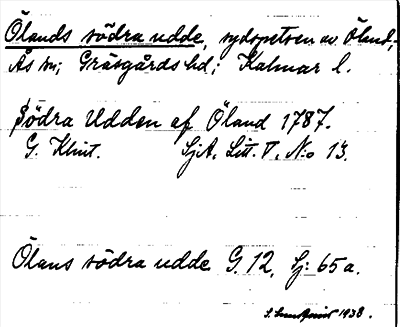 Ölands södra udde, sydspetsen av Öland,
Ås sn; Gräsgårds hd; Kalmar l.
Södra Udden af Öland 1787.
G. Klint. SjA, Litt. V, N:o 13.
Ölans södra udde G. 12, Sj: 65a.
1938.